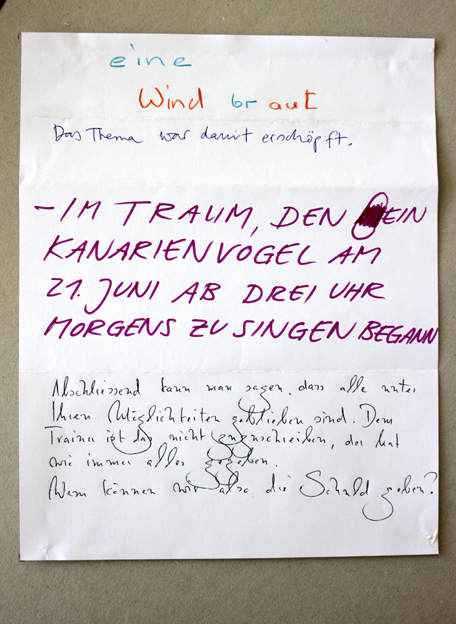 eine
Wind braut
Das Thema war damit erschöpft.
– IM TRAUM, DEN EIN
KANARIENVOGEL AM
21. JUNI AB DREI UHR
MORGENS ZU SINGEN BEGANN
Abschliessend kann man sagen, dass alle unter
Ihren Möglichkeiten geblieben sind. Dem
Trainer ist das nicht anzuschreiben, der hat
wie immer alles gegeben.
Wem können wir also die Schuld geben?